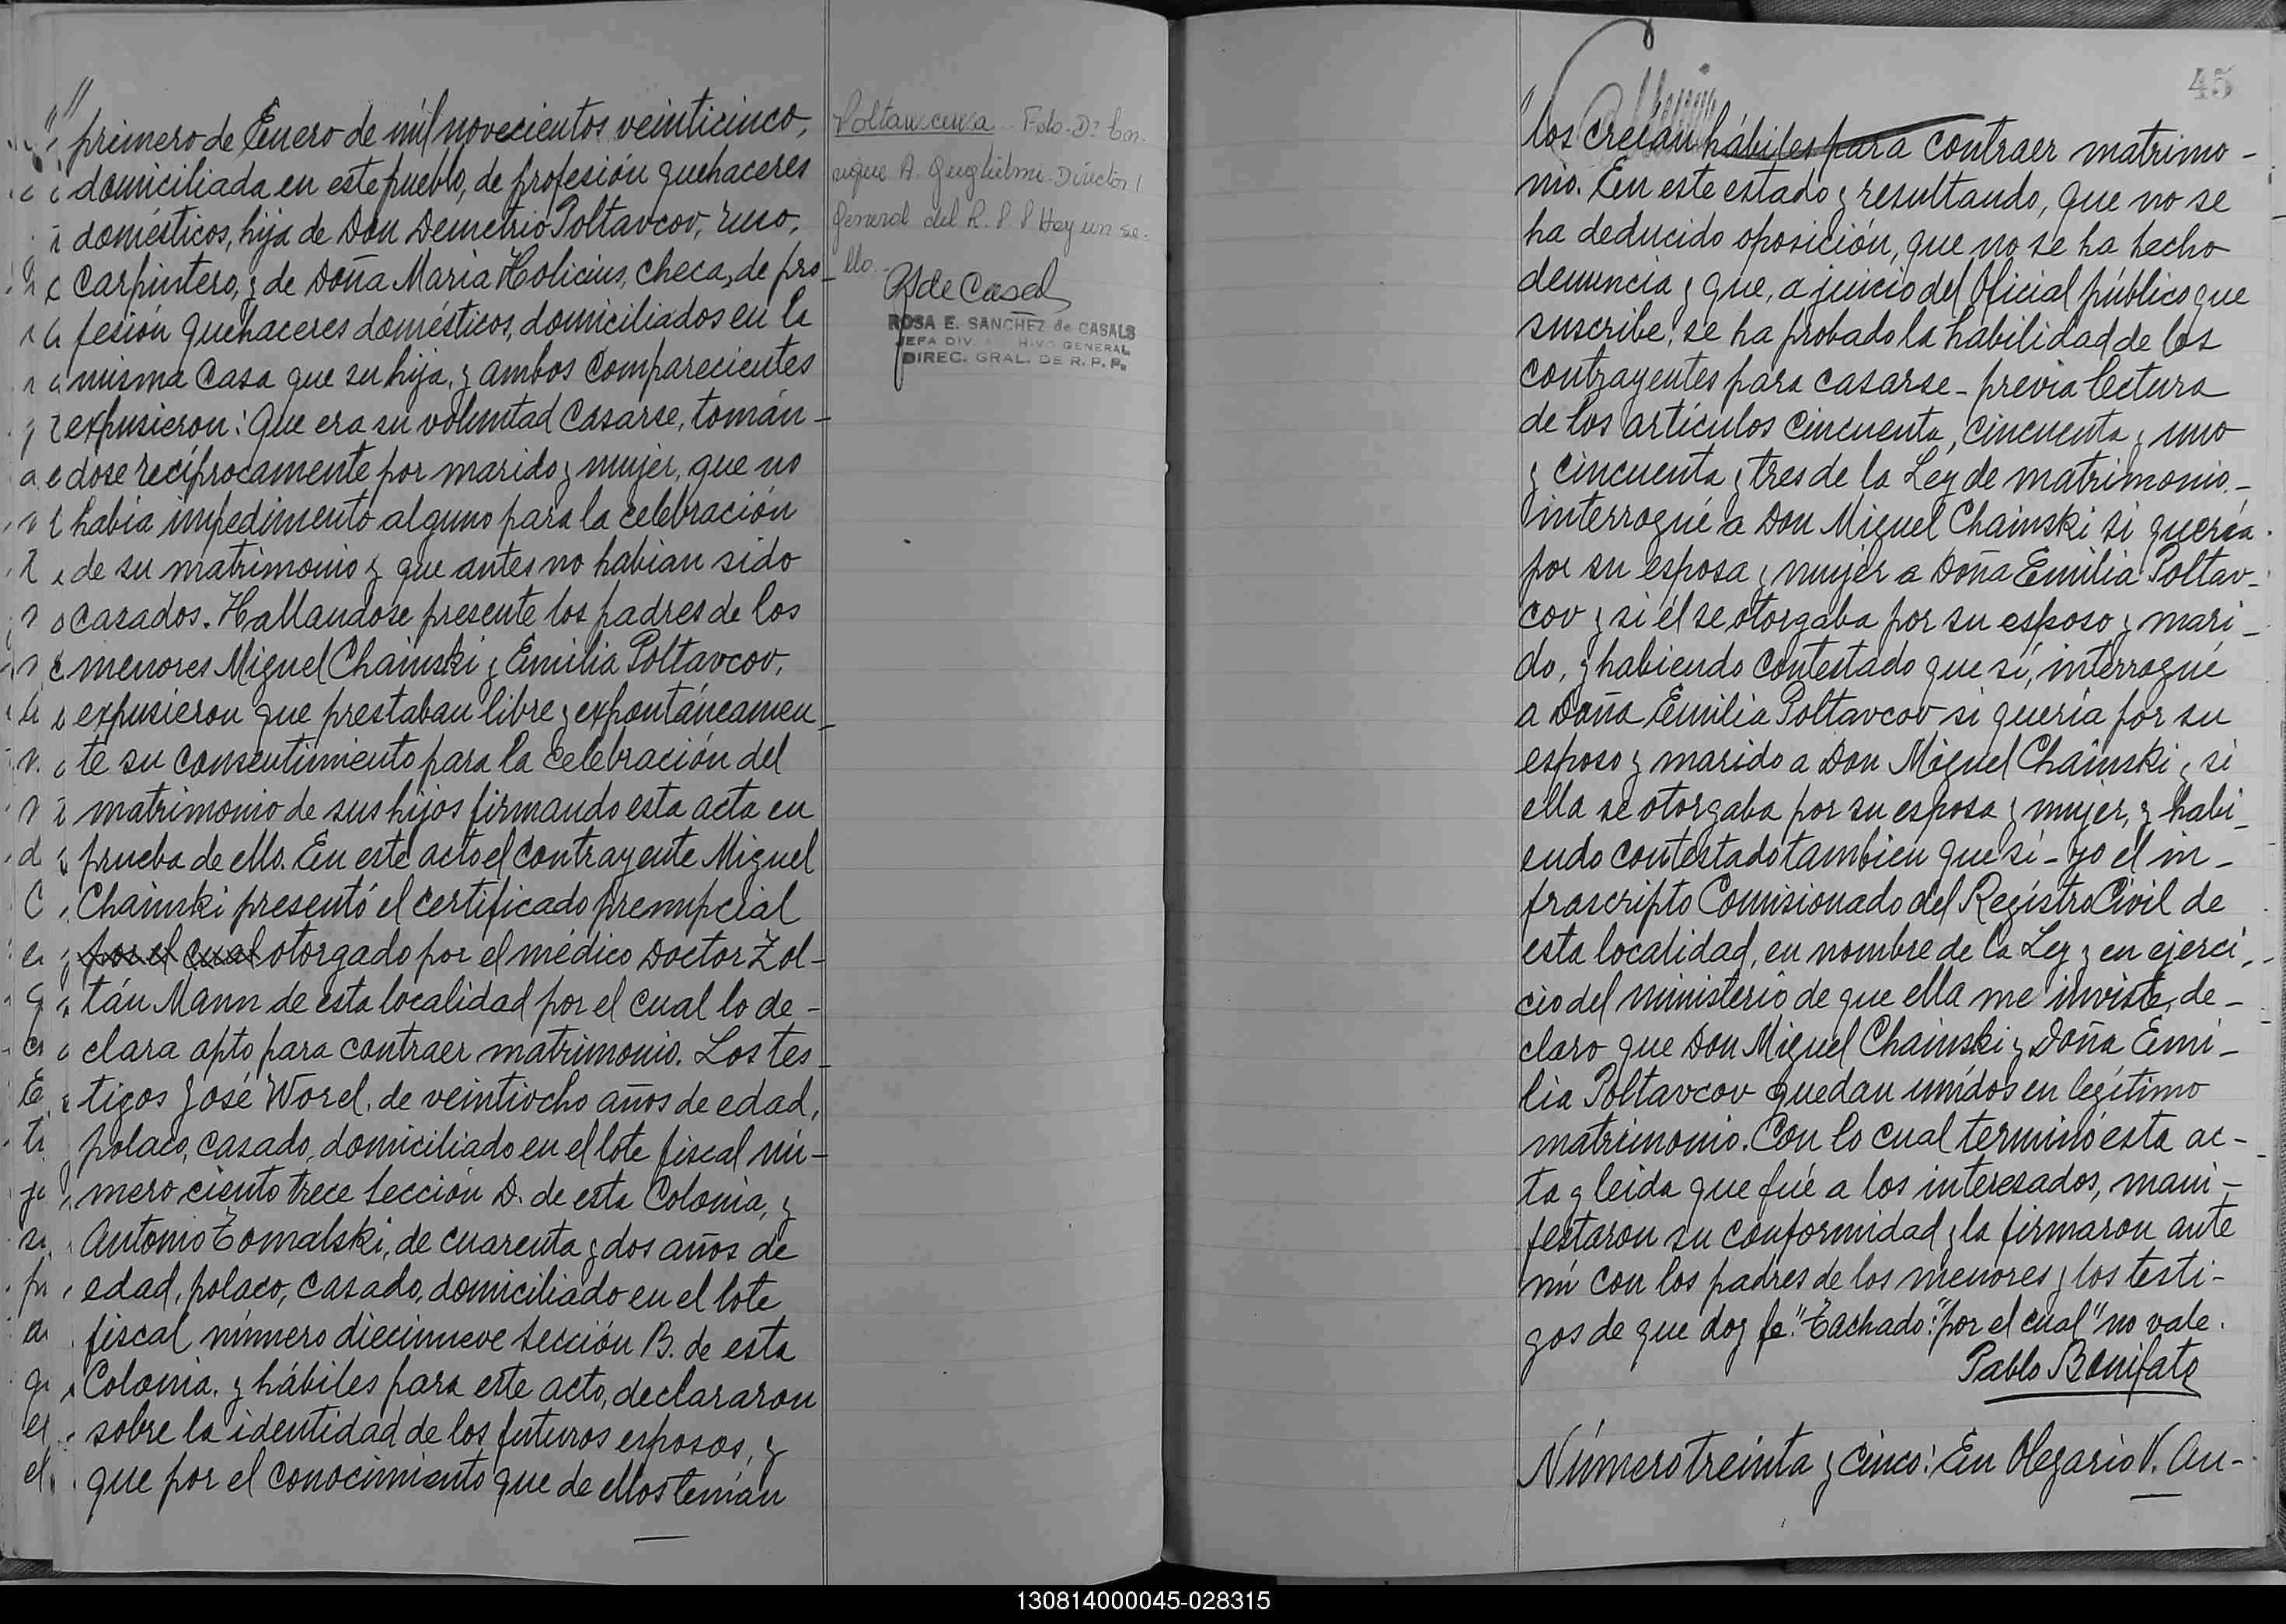 primero de Enero de mil novecientos veinticinco,
domiciliada en este pueblo, de profesión quehaceres
domésticos, hija de Don Demetrio Poltavcov, ruso,
carpintero, y de Doña Maria Holicius, checa, de pro-
fesión quehaceres domésticos, domiciliados en la
misma casa que su hija, y ambos comparecientes
expusieron: Que era su voluntad casarse, tomán-
dose recíprocamente por marido y mujer, que no
había impedimento alguno para la celebración
de su matrimonio y que antes no habian sido
casados. Hallandose presente los padres de los
menores Miguel Chainski y Emilia Poltavcov,
expusieron que prestaban libre y expontáneamen-
te su consentimiento para la celebración del
matrimonio de sus hijos firmando esta acta en
prueba de ello. En este acto el contrayente Miguel
Chainski presentó el certificado prenupcial
por el cual otorgado por el médico Doctor Zol-
tán Mann de esta localidad por el cual lo de-
clara apto para contraer matrimonio. Los tes-
tigos José Worel, de veintiocho años de edad,
polaco, casado, domiciliado en el lote fiscal nú-
mero ciento trece sección D. de esta Colonia, y
Antonio Tomalski, de cuarenta y dos años de
edad, polaco, casado, domiciliado en el lote
fiscal número diecinueve sección B. de esta
Colonia. y hábiles para este acto, declararon
sobre la identidad de los futuros esposos, y
que por el conocimiento que de ellos tenían
Fdo. Dr. En-
rique A. Guglielmi - Director
General del R. P. P Hay un se-
llo.
R S de Casals
ROSA E. SANCHEZ de CASALS
JEFA DIV. GENERAL
DIREC. GRAL. DE R. P. P.
45
los creían hábiles para contraer matrimo-
nio. En este estado y resultando, que no se
ha deducido oposición, que no se ha hecho
denuncia y que, a juicio del Oficial público que
suscribe, se ha probado la habilidad de los
contrayentes para casarse - previa lectura
de los artículos cincuenta, cincuenta y uno
y cincuenta y tres de la Ley de matrimonio.-
interrogué a Don Miguel Chainski si quería
por su esposa y mujer a Doña Emilia Poltav-
cov y si él se otorgaba por su esposo y mari-
do, y habiendo contestado que sí, interrogué
a Doña Emilia Poltavcov si quería por su
esposo y marido a Don Miguel Chainski y si
ella se otorgaba por su esposa y mujer, y habi-
endo contestado tambien que sí - yo el in-
frascripto Comisionado del Registro Civil de
esta localidad, en nombre de la Ley y en ejerci-
cio del ministerio de que ella me inviste, de-
claro que Don Miguel Chainski y Doña Emi-
lia Poltavcov quedan unidos en legítimo
matrimonio. Con lo cual terminó esta ac-
ta y leida que fué a los interesados, mani-
festaron su conformidad y la firmaron ante
mi con los padres de los menores y los testi-
gos de que doy fe." Tachado: "por el cual" no vale.
Pablo Bonifato
Número treinta y cinco: En Olegario V. An-
130814000045-028315